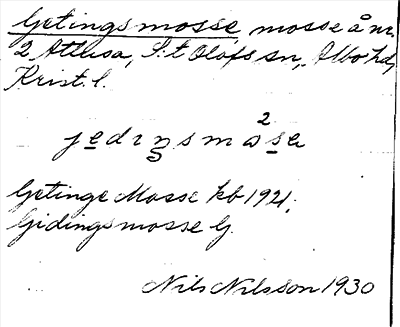 Getingsmosse, mosse å nr.
2 Attusa, S:t Olofs sn, Albo hd,
Krist. l.
jedingsmo²sa
Getinge Mosse kb 1921.
Gidingsmosse G.
Nils Nilsson 1930